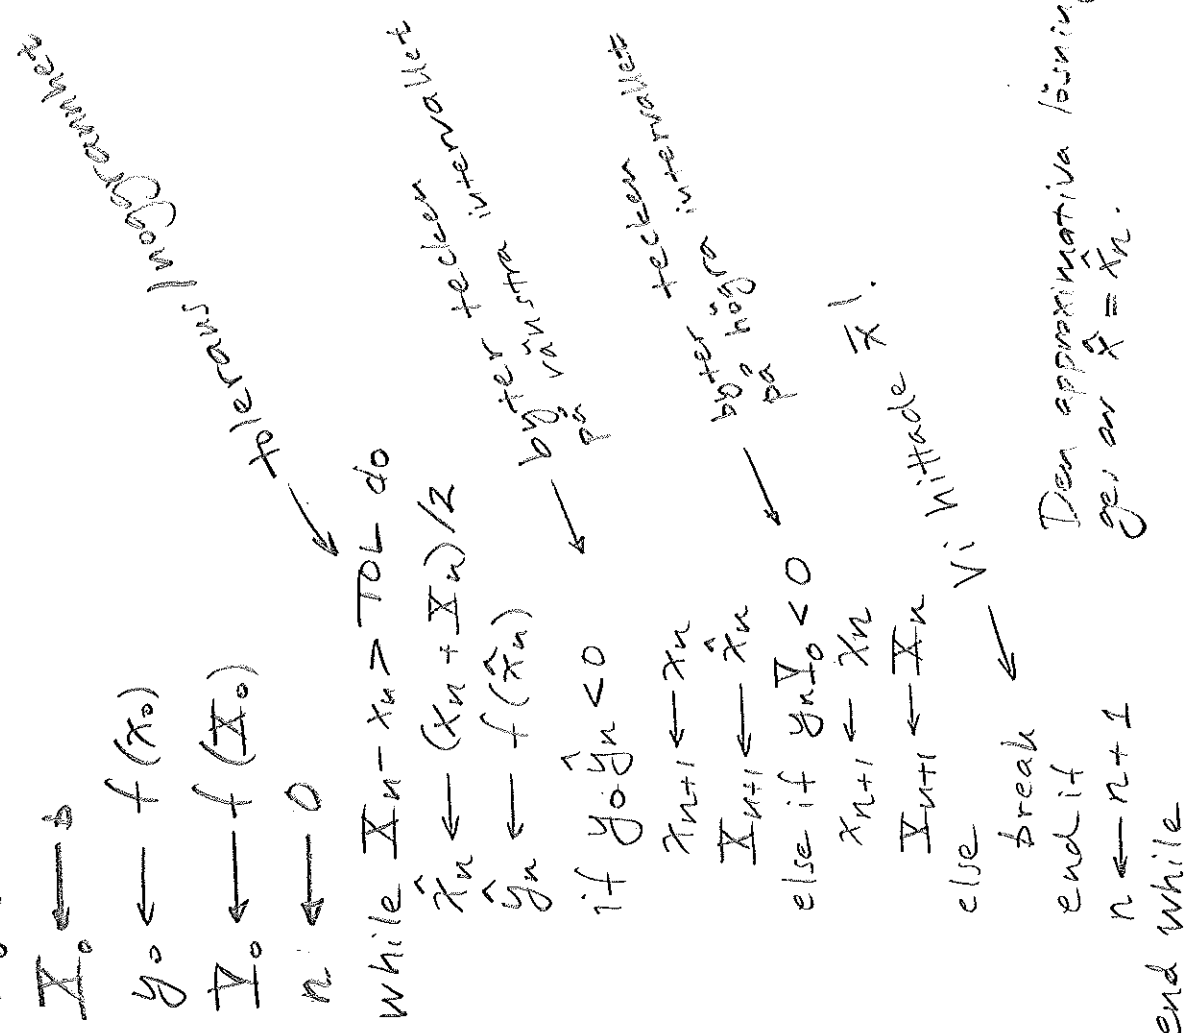 X₀ ← b
y₀ ← f(x₀)
Y₀ ← f(X₀)
n ← 0
tolerans/noggrannhet
while Xₙ - xₙ > TOL do
x̂ₙ ← (xₙ + Xₙ)/2
ŷₙ ← f(x̂ₙ)
if y₀ŷₙ < 0 ← byter tecken
på vänstra intervallet
xₙ₊₁ ← xₙ
Xₙ₊₁ ← x̂ₙ
else if yₙY₀ < 0 ← byter tecken
på högra intervallet
xₙ₊₁ ← xₙ
Xₙ₊₁ ← Xₙ
else
break ← Vi hittade x̄!
end if
n ← n+1
end while
Den approximativa lösning
ges av x̂ = x̂ₙ.